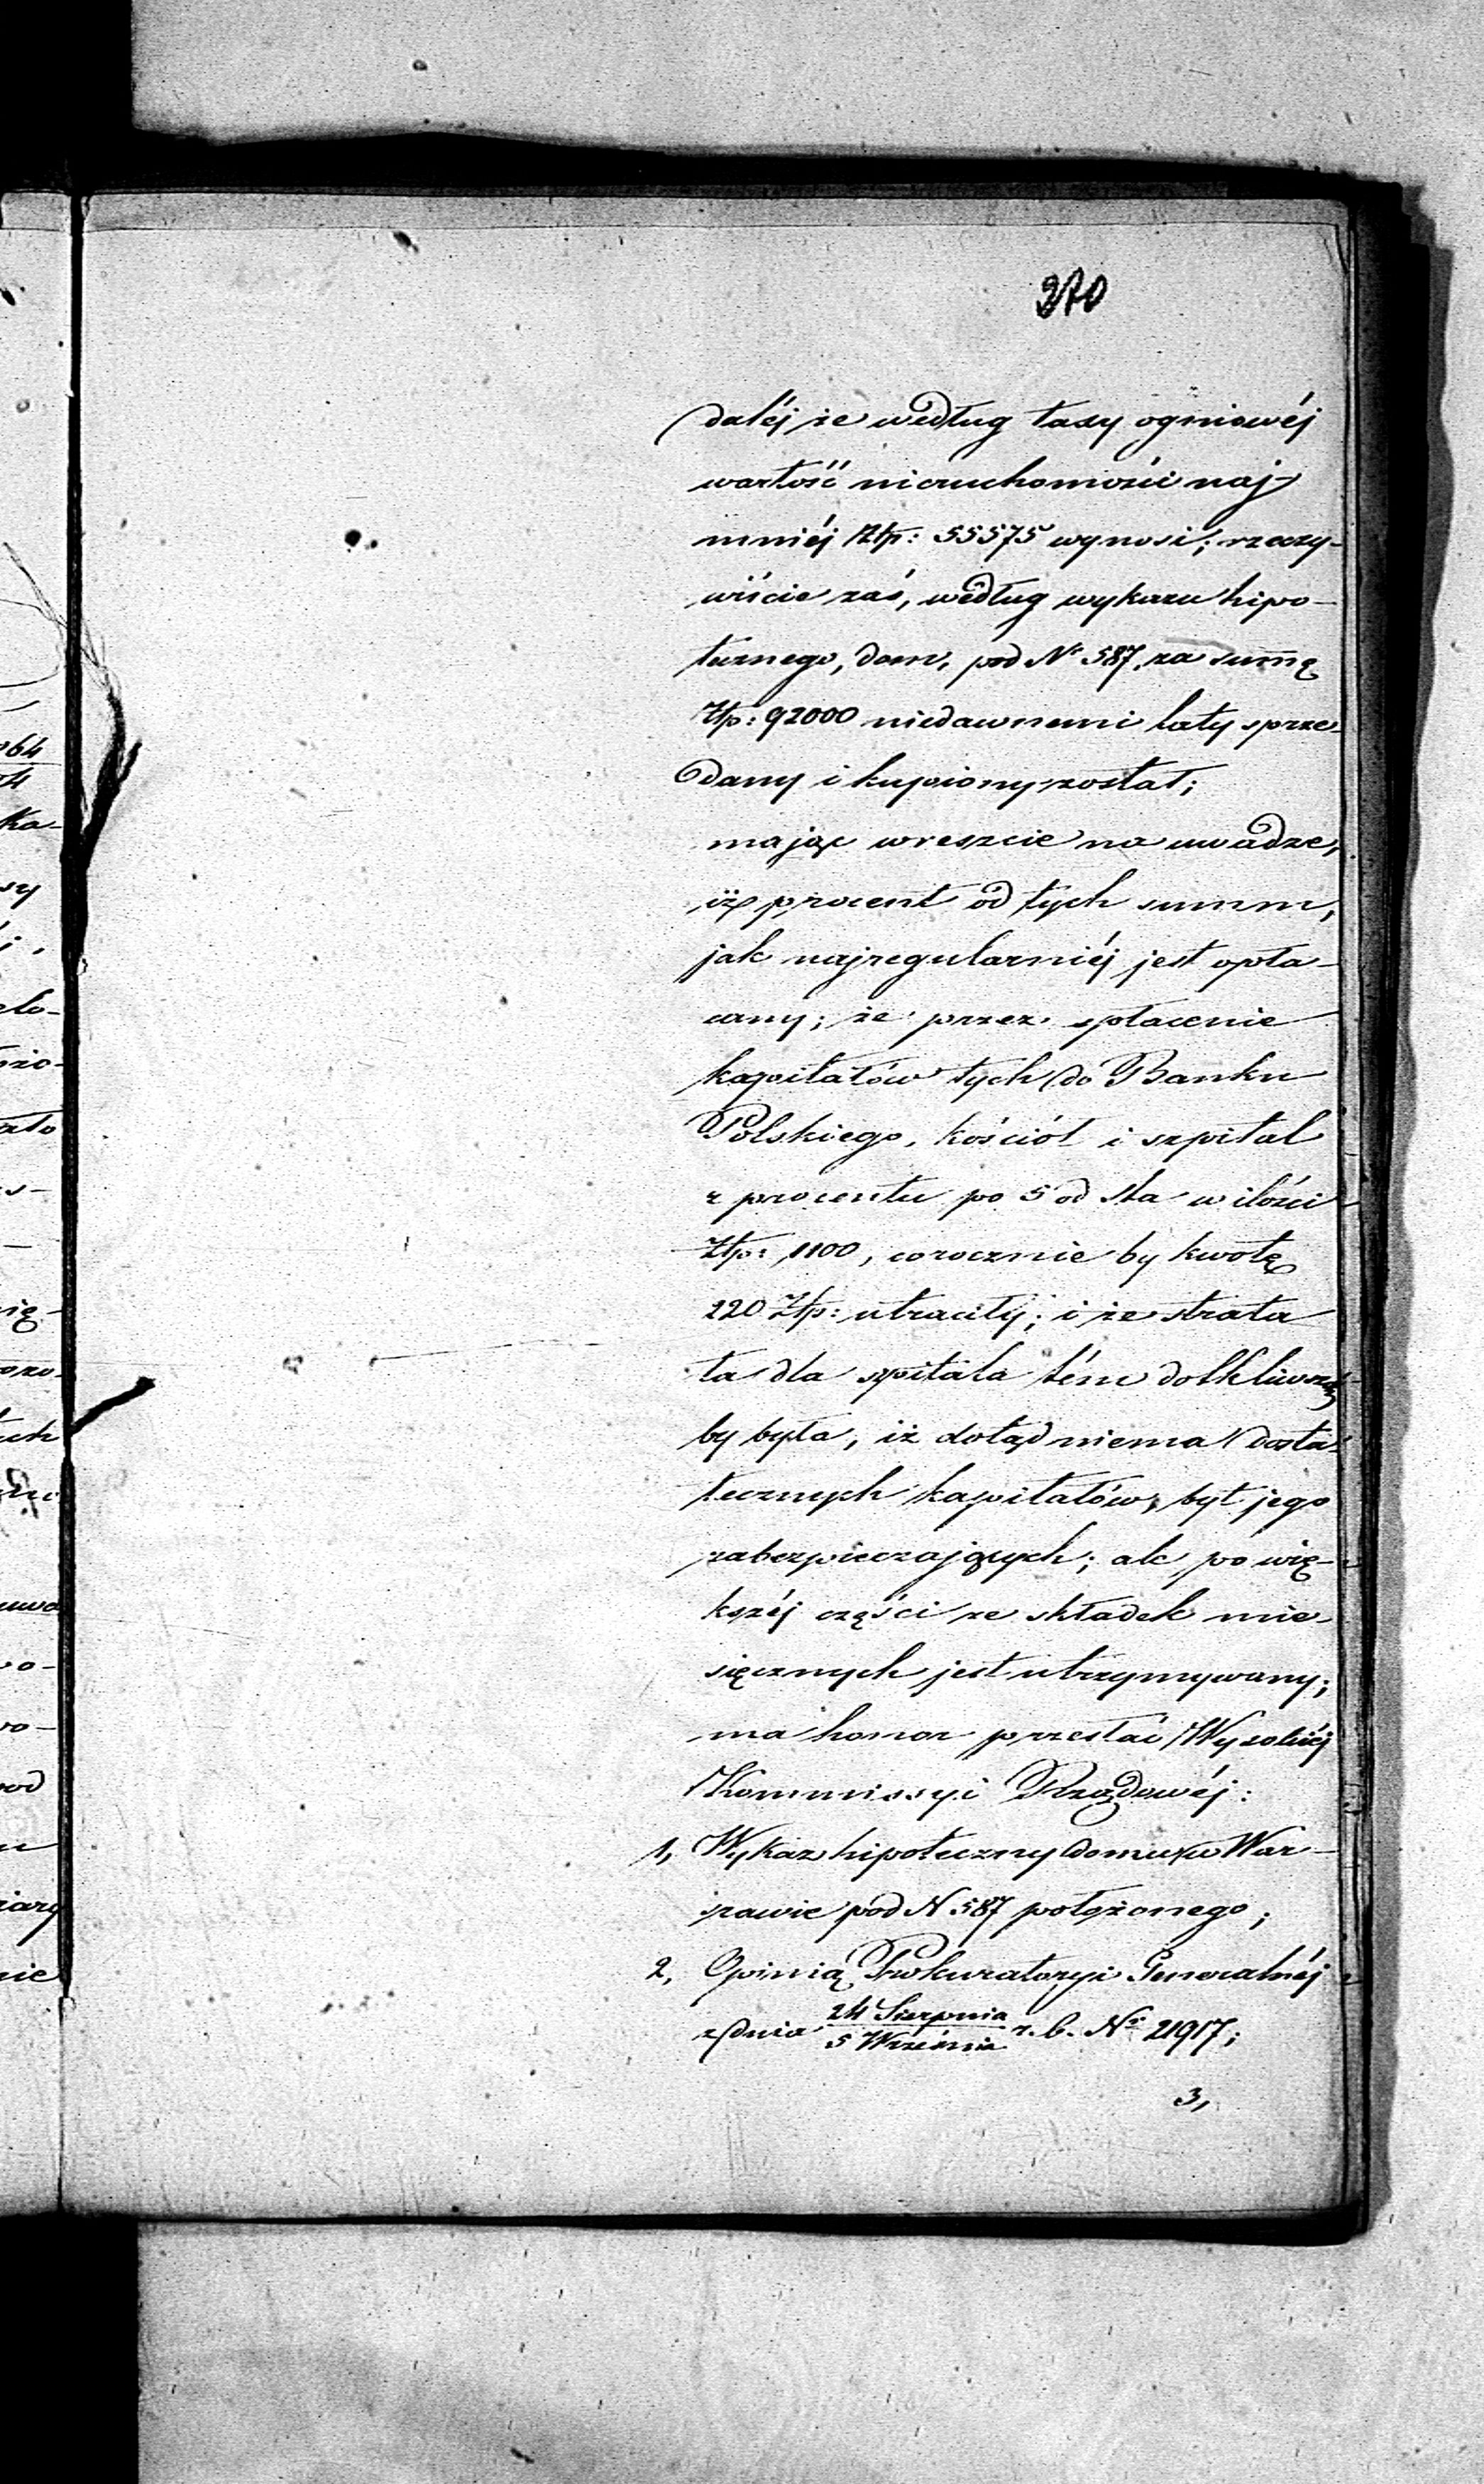 270
daléj że według taxy ogniowéj
wartość nieruchomości naj-
mniéj Złp: 55575 wynosi; rzeczy-
wiście zaś, według wykazu hipo-
tecznego, dom, pod Nr 587, za sumę
Złp: 92000 niedawnemi laty sprze-
dany i kupiony został;
mając wreszcie na uwadze,
iż procent od tych summ,
jak najregularniéj jest opła-
cany; że przez spłacenie
kapitałów tych do Banku
Polskiego, kościół i szpital
z procentu po 5 od sta w ilości
Złp: 1100, corocznie by kwotę
220 Złp: utraciły; i że strata
ta dla szpitala tém dotkliwszą
by była, iż dotąd niema dosta-
tecznych kapitałów, byt jego
zabezpieczających; ale po wię-
kszéj części ze składek mie-
sięcznych jest utrzymywany;
ma honor przesłać Wysokiéj
Kommissyi Rządowéj:
1, Wykaz hipoteczny domu w War-
szawie pod N 587 położonego;
2, Opinią Prokuratoryi Generalnéj
z dnia 24 Sierpnia / 5 Września r. b. Nr 21917;
3,
64
4
Ka-
sy
elo-
zio-
ato
s-
ię-
ozo-
uch
uwa
wo-
wo-
pod
iary
nie